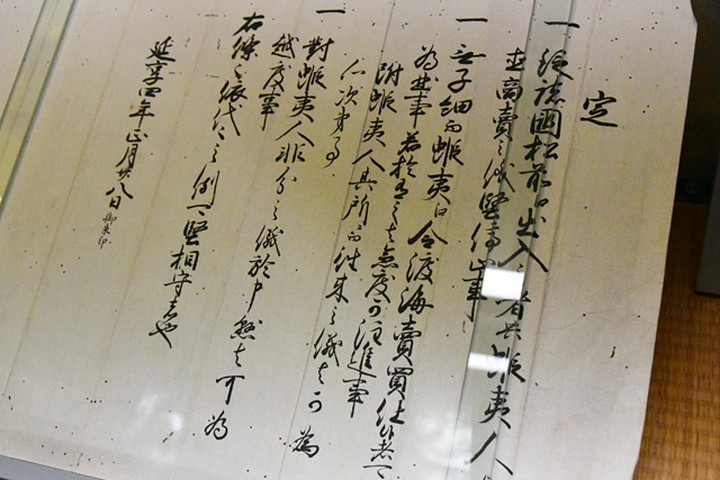 定
一 從諸國松前江出入之者共蝦夷人
直商賣之儀堅停止事
一 無子細而蝦夷江令渡海賣買仕候者可
為曲事若於有之者急度可注進事
附蝦夷人其所而往来之儀者可為
心次第事
一 對蝦夷人非分之儀於申懸者可為
越度事
右條々依代々之例可堅相守者也
延享四年正月廿八日 御朱印